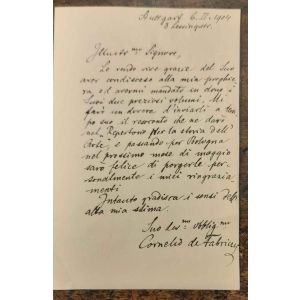 Stuttgart 6. II. 1904
Illustre mo Signore,
Le rendo vive grazie del Suo
aver condisceso alla mia preghie
ra ed avermi mandato in dono i
Suoi due preziosi volumi. Mi
farò un dovere d'inviarle a tem
po suo il resoconto che ne darò
nel Repertorio per la storia dell'
Arte, e passando per Bologna
nel prossimo mese di maggio
sarò felice di porgerle per
sonalmente i miei ringrazia
menti
Intanto gradisca i sensi della
alta mia stima.
Suo dev mo obblig mo
Cornelio de Fabriczy